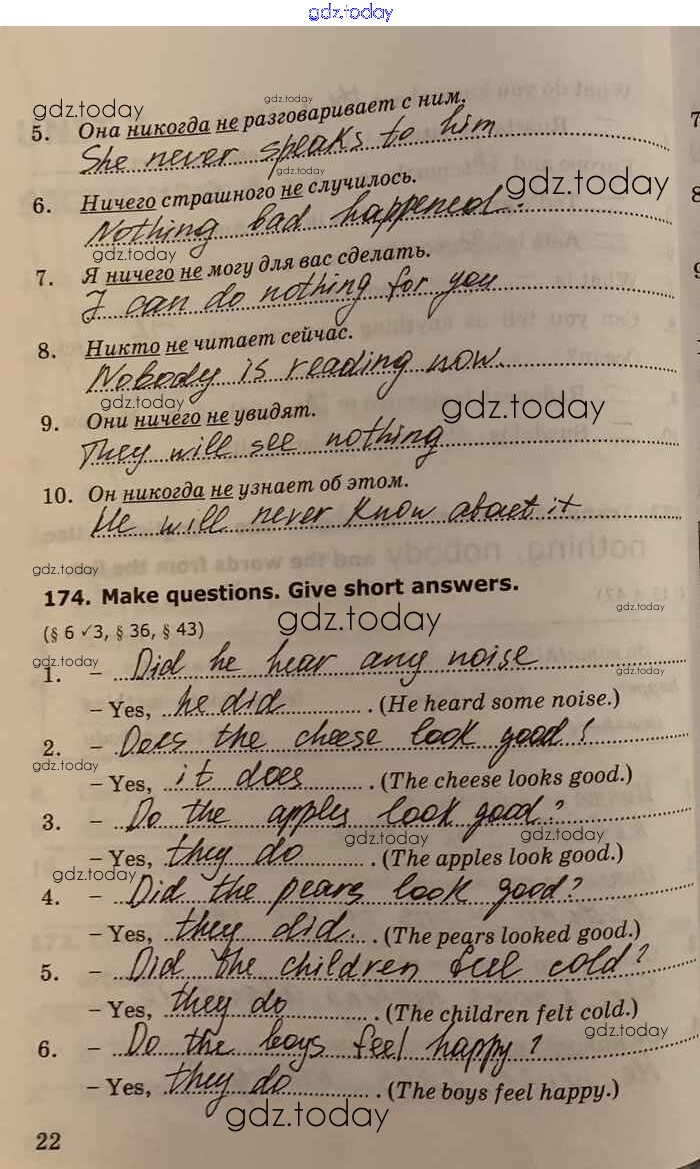 gdz.today
gdz.today
gdz.today
5. Она никогда не разговаривает с ним.
She never speaks to him
gdz.today
gdz.today
6. Ничего страшного не случилось.
Nothing bad happened.
gdz.today
7. Я ничего не могу для вас сделать.
I can do nothing for you
8. Никто не читает сейчас.
Nobody is reading now.
gdz.today
gdz.today
9. Они ничего не увидят.
They will see nothing
10. Он никогда не узнает об этом.
He will never know about it
gdz.today
174. Make questions. Give short answers.
gdz.today
gdz.today
(§ 6 ✓3, § 36, § 43)
gdz.today
gdz.today
1. – Did he hear any noise
– Yes, he did. (He heard some noise.)
2. – Does the cheese look good?
gdz.today
– Yes, it does. (The cheese looks good.)
3. – Do the apples look good?
gdz.today
gdz.today
– Yes, they do. (The apples look good.)
gdz.today
4. – Did the pears look good?
– Yes, they did. (The pears looked good.)
5. – Did the children feel cold?
– Yes, they do. (The children felt cold.)
gdz.today
6. – Do the boys feel happy?
– Yes, they do. (The boys feel happy.)
gdz.today
22